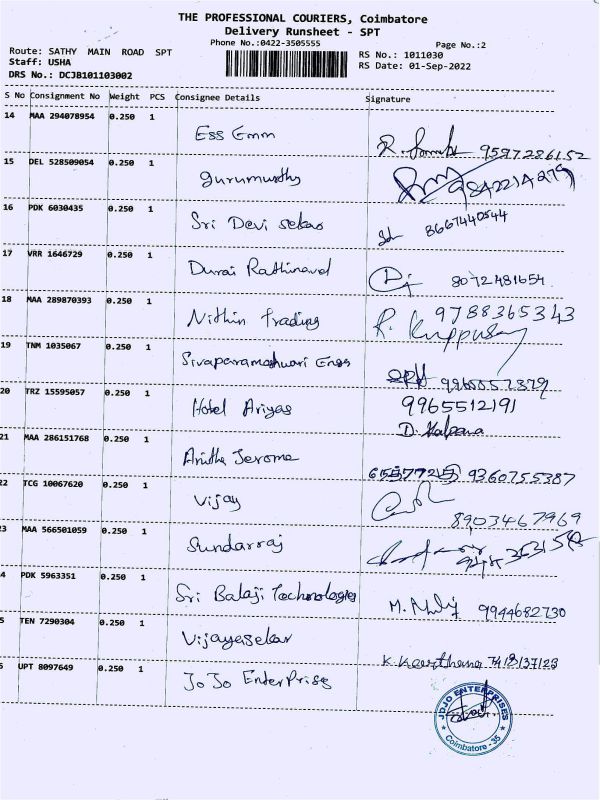 THE PROFESSIONAL COURIERS, Coimbatore
Delivery Runsheet - SPT
Phone No.:0422-3505555
Page No.:2
Route: SATHY MAIN ROAD SPT
RS No.: 1011030
Staff: USHA
RS Date: 01-Sep-2022
DRS No.: DCJB101103002
S No Consignment No Weight PCS Consignee Details Signature
14 MAA 294078954 0.250 1
Ess Emm 9597286152
15 DEL 528509054 0.250 1
gurumurthy
16 PDK 6030435 0.250 1
Sri Devi sekar 8667440544
17 VRR 1646729 0.250 1
Durai Rathinavel 8072481654
18 MAA 289870393 0.250 1
Nithin Trading 9788365343
R. Kuppusamy
19 TNM 1035067 0.250 1
Sivaparameshwari Engg
20 TRZ 15595057 0.250 1
Hotel Ariyas 9965512191
D. Kalpana
21 MAA 286151768 0.250 1
Anitha Jerome 9360755387
22 TCG 10067620 0.250 1
Vijay 8903467969
3 MAA 566501059 0.250 1
Sundarraj
4 PDK 5963351 0.250 1
Sri Balaji Technologies 9944682730
5 TEN 7290304 0.250 1
Vijayasekar K. Keerthana 7418137123
UPT 8097649 0.250 1
JoJo EnterPrises
JOJO ENTERPRISES
Coimbatore - 35